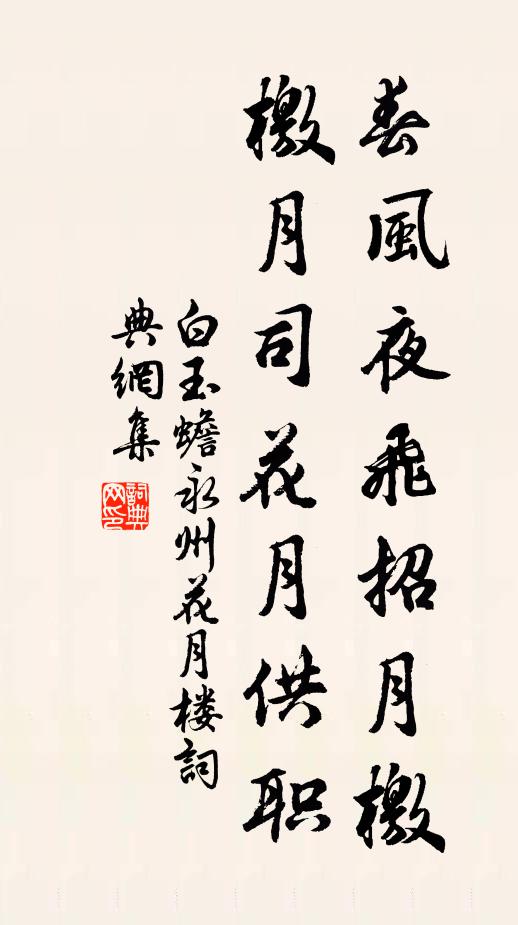 春風夜飛招月檄
檄月司花月供职
白玉蟾永州花月楼詞
典網集
詞典网印